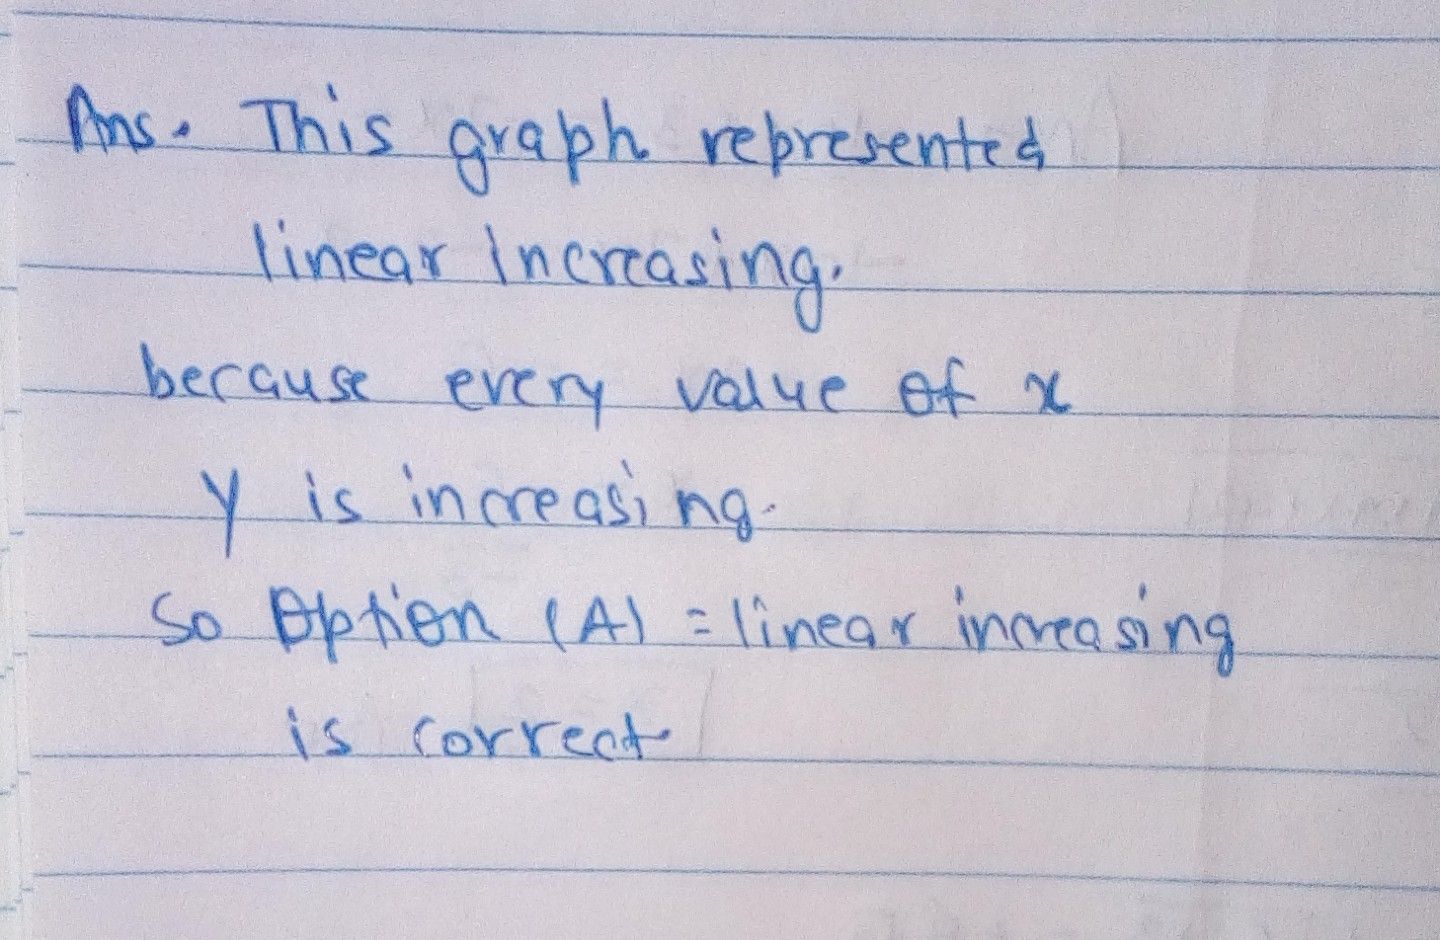 Ans. This graph represented
linear Increasing.
because every value of x
y is increasing.
So Option (A) = linear increasing
is correct